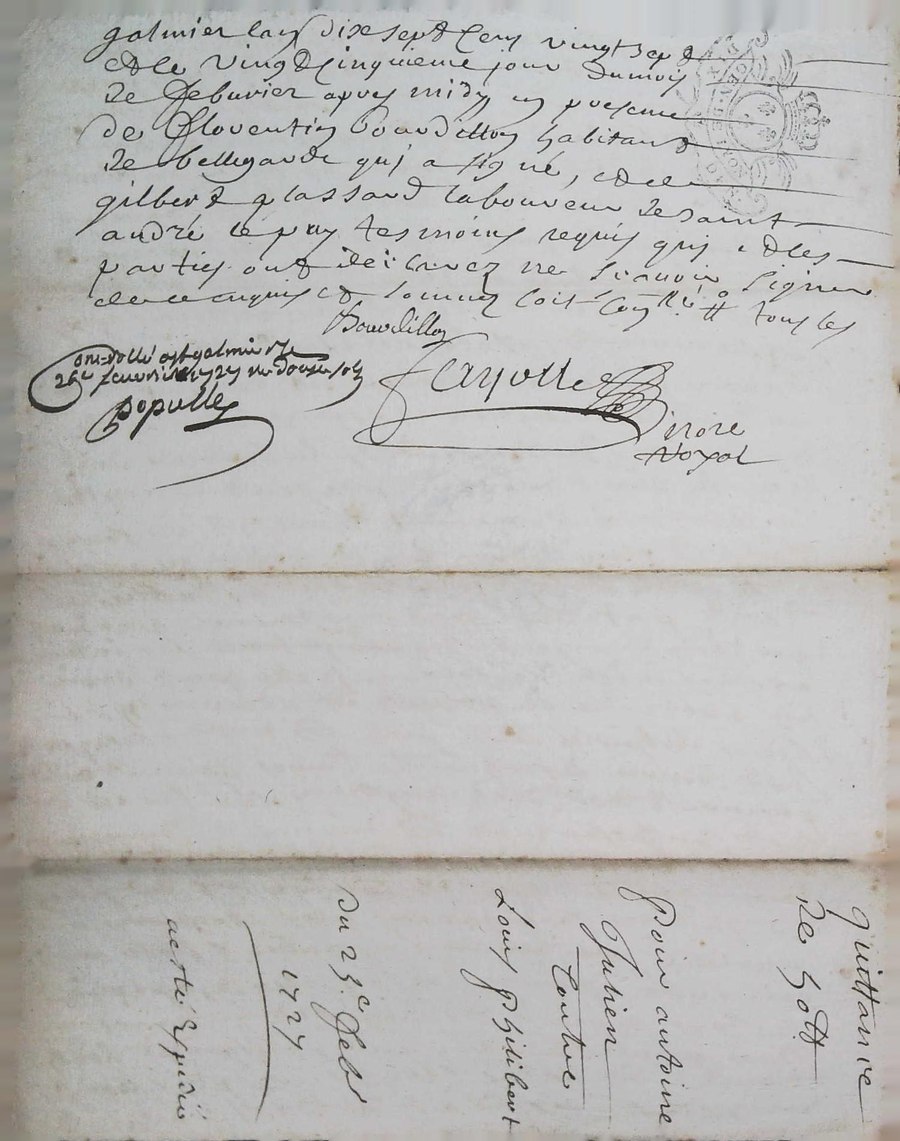 galmier lan dixsept cens vingt sept
et le vingt cinquieme jour du mois
de febvrier apres midy en presence
de florentin bourdillon habitant
de bellegarde qui a signé, et de
gilbert plassard laboureur de saint
andré le puy tesmoins requis qui et les
parties ont declarez ne scavoir signer
de ce enquis et sommez soit tous les
Bourdillon
galmier le
26e fevrier 1727 douze sols
Populle
Fayolle
Notre
Royal
Quittance
de
pour antoine
Julien
Contre
Louis philibert
Du 25e feb
1727